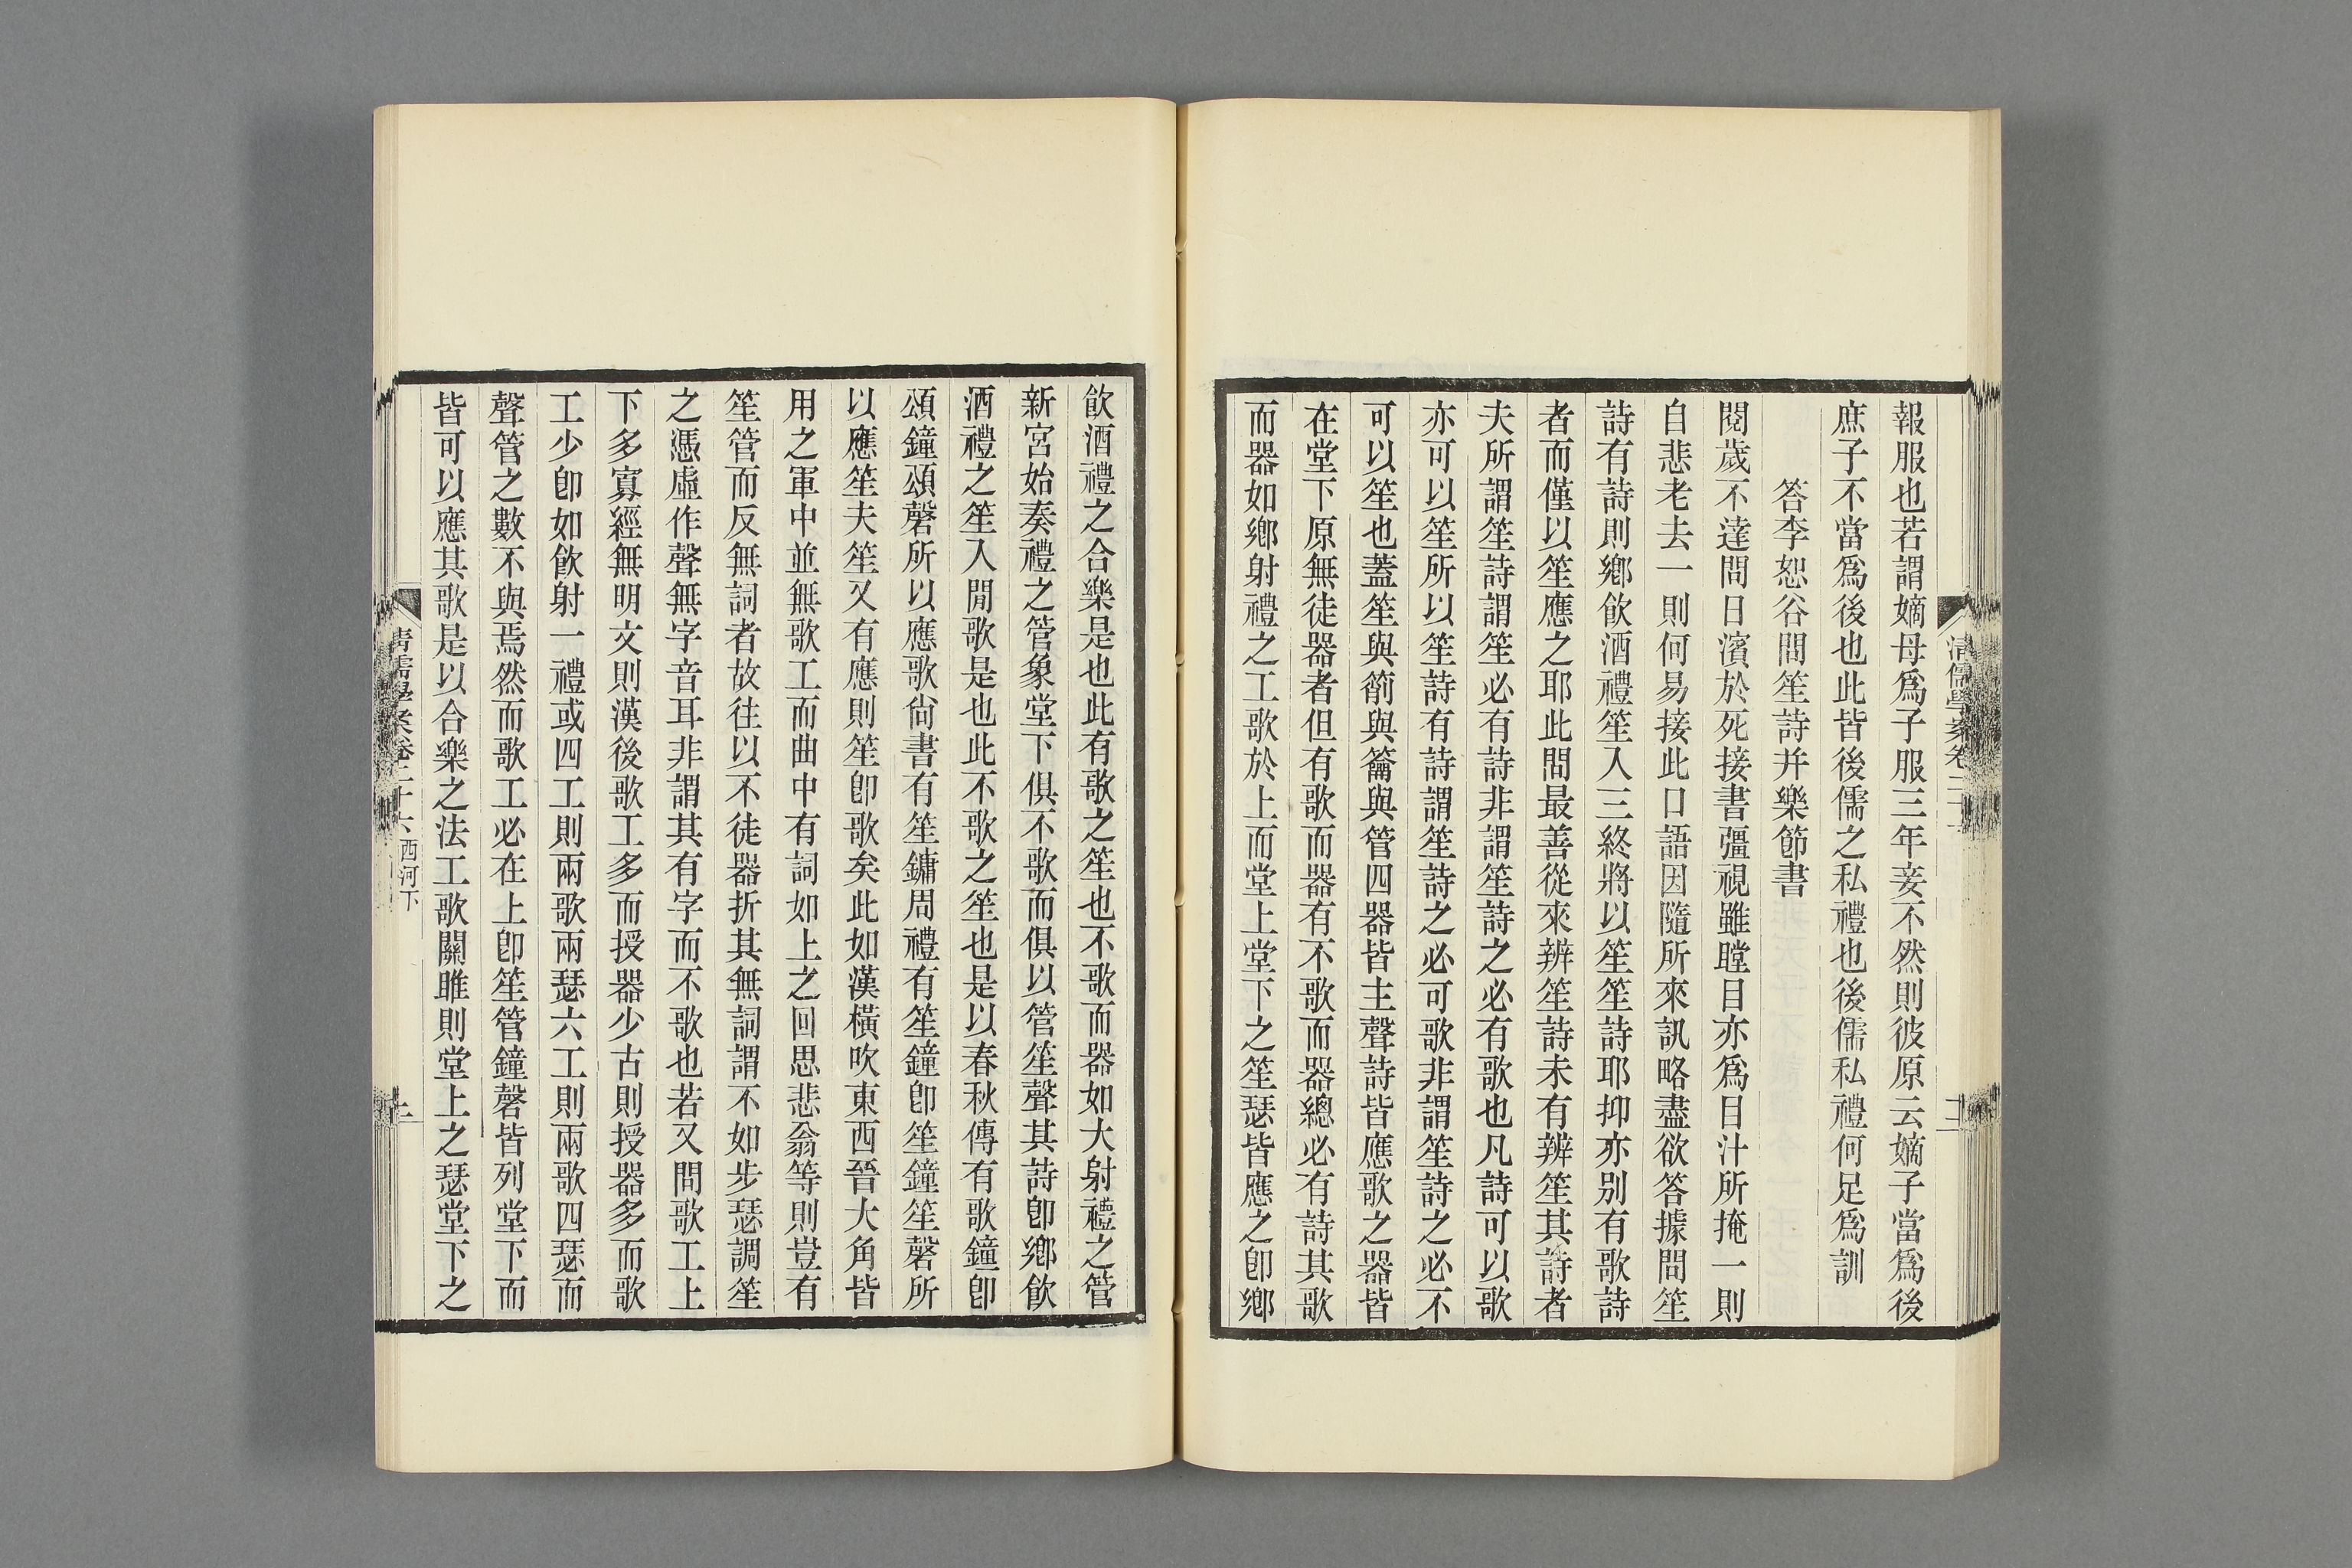 報服也若謂嫡母爲子服三年妾不然則彼原云嫡子當爲後
庶子不當爲後也此皆後儒之私禮也後儒私禮何足爲訓
答李恕谷問笙詩并樂節書
閱歲不達問日濱於死接書彊視雖瞠目亦爲目汁所掩一則
自悲老去一則何易接此口語因隨所來訊略盡欲答據問笙
詩有詩則鄕飮酒禮笙入三終將以笙笙詩耶抑亦別有歌詩
者而僅以笙應之耶此問最善從來辨笙詩未有辨笙其詩者
夫所謂笙詩謂笙必有詩非謂笙詩之必有歌也凡詩可以歌
亦可以笙所以笙詩有詩謂笙詩之必可歌非謂笙詩之必不
可以笙也蓋笙與箾與籥與管四器皆主聲詩皆應歌之器皆
在堂下原無徒器者但有歌而器有不歌而器總必有詩其歌
而器如鄕射禮之工歌於上而堂上堂下之笙瑟皆應之卽鄕
飮酒禮之合樂是也此有歌之笙也不歌而器如大射禮之管
新宮始奏禮之管象堂下俱不歌而俱以管笙聲其詩卽鄕飮
酒禮之笙入閒歌是也此不歌之笙也是以春秋傳有歌鐘卽
頌鐘頌磬所以應歌尙書有笙鏞周禮有笙鐘卽笙鐘笙磬所
以應笙夫笙又有應則笙卽歌矣此如漢橫吹東西晉大角皆
用之軍中並無歌工而曲中有詞如上之回思悲翁等則豈有
笙管而反無詞者故往以不徒器折其無詞謂不如步瑟調笙
之憑虛作聲無字音耳非謂其有字而不歌也若又問歌工上
下多寡經無明文則漢後歌工多而授器少古則授器多而歌
工少卽如飮射一禮或四工則兩歌兩瑟六工則兩歌四瑟而
聲管之數不與焉然而歌工必在上卽笙管鐘磬皆列堂下而
皆可以應其歌是以合樂之法工歌關雎則堂上之瑟堂下之
清儒學案卷二十六 西河下